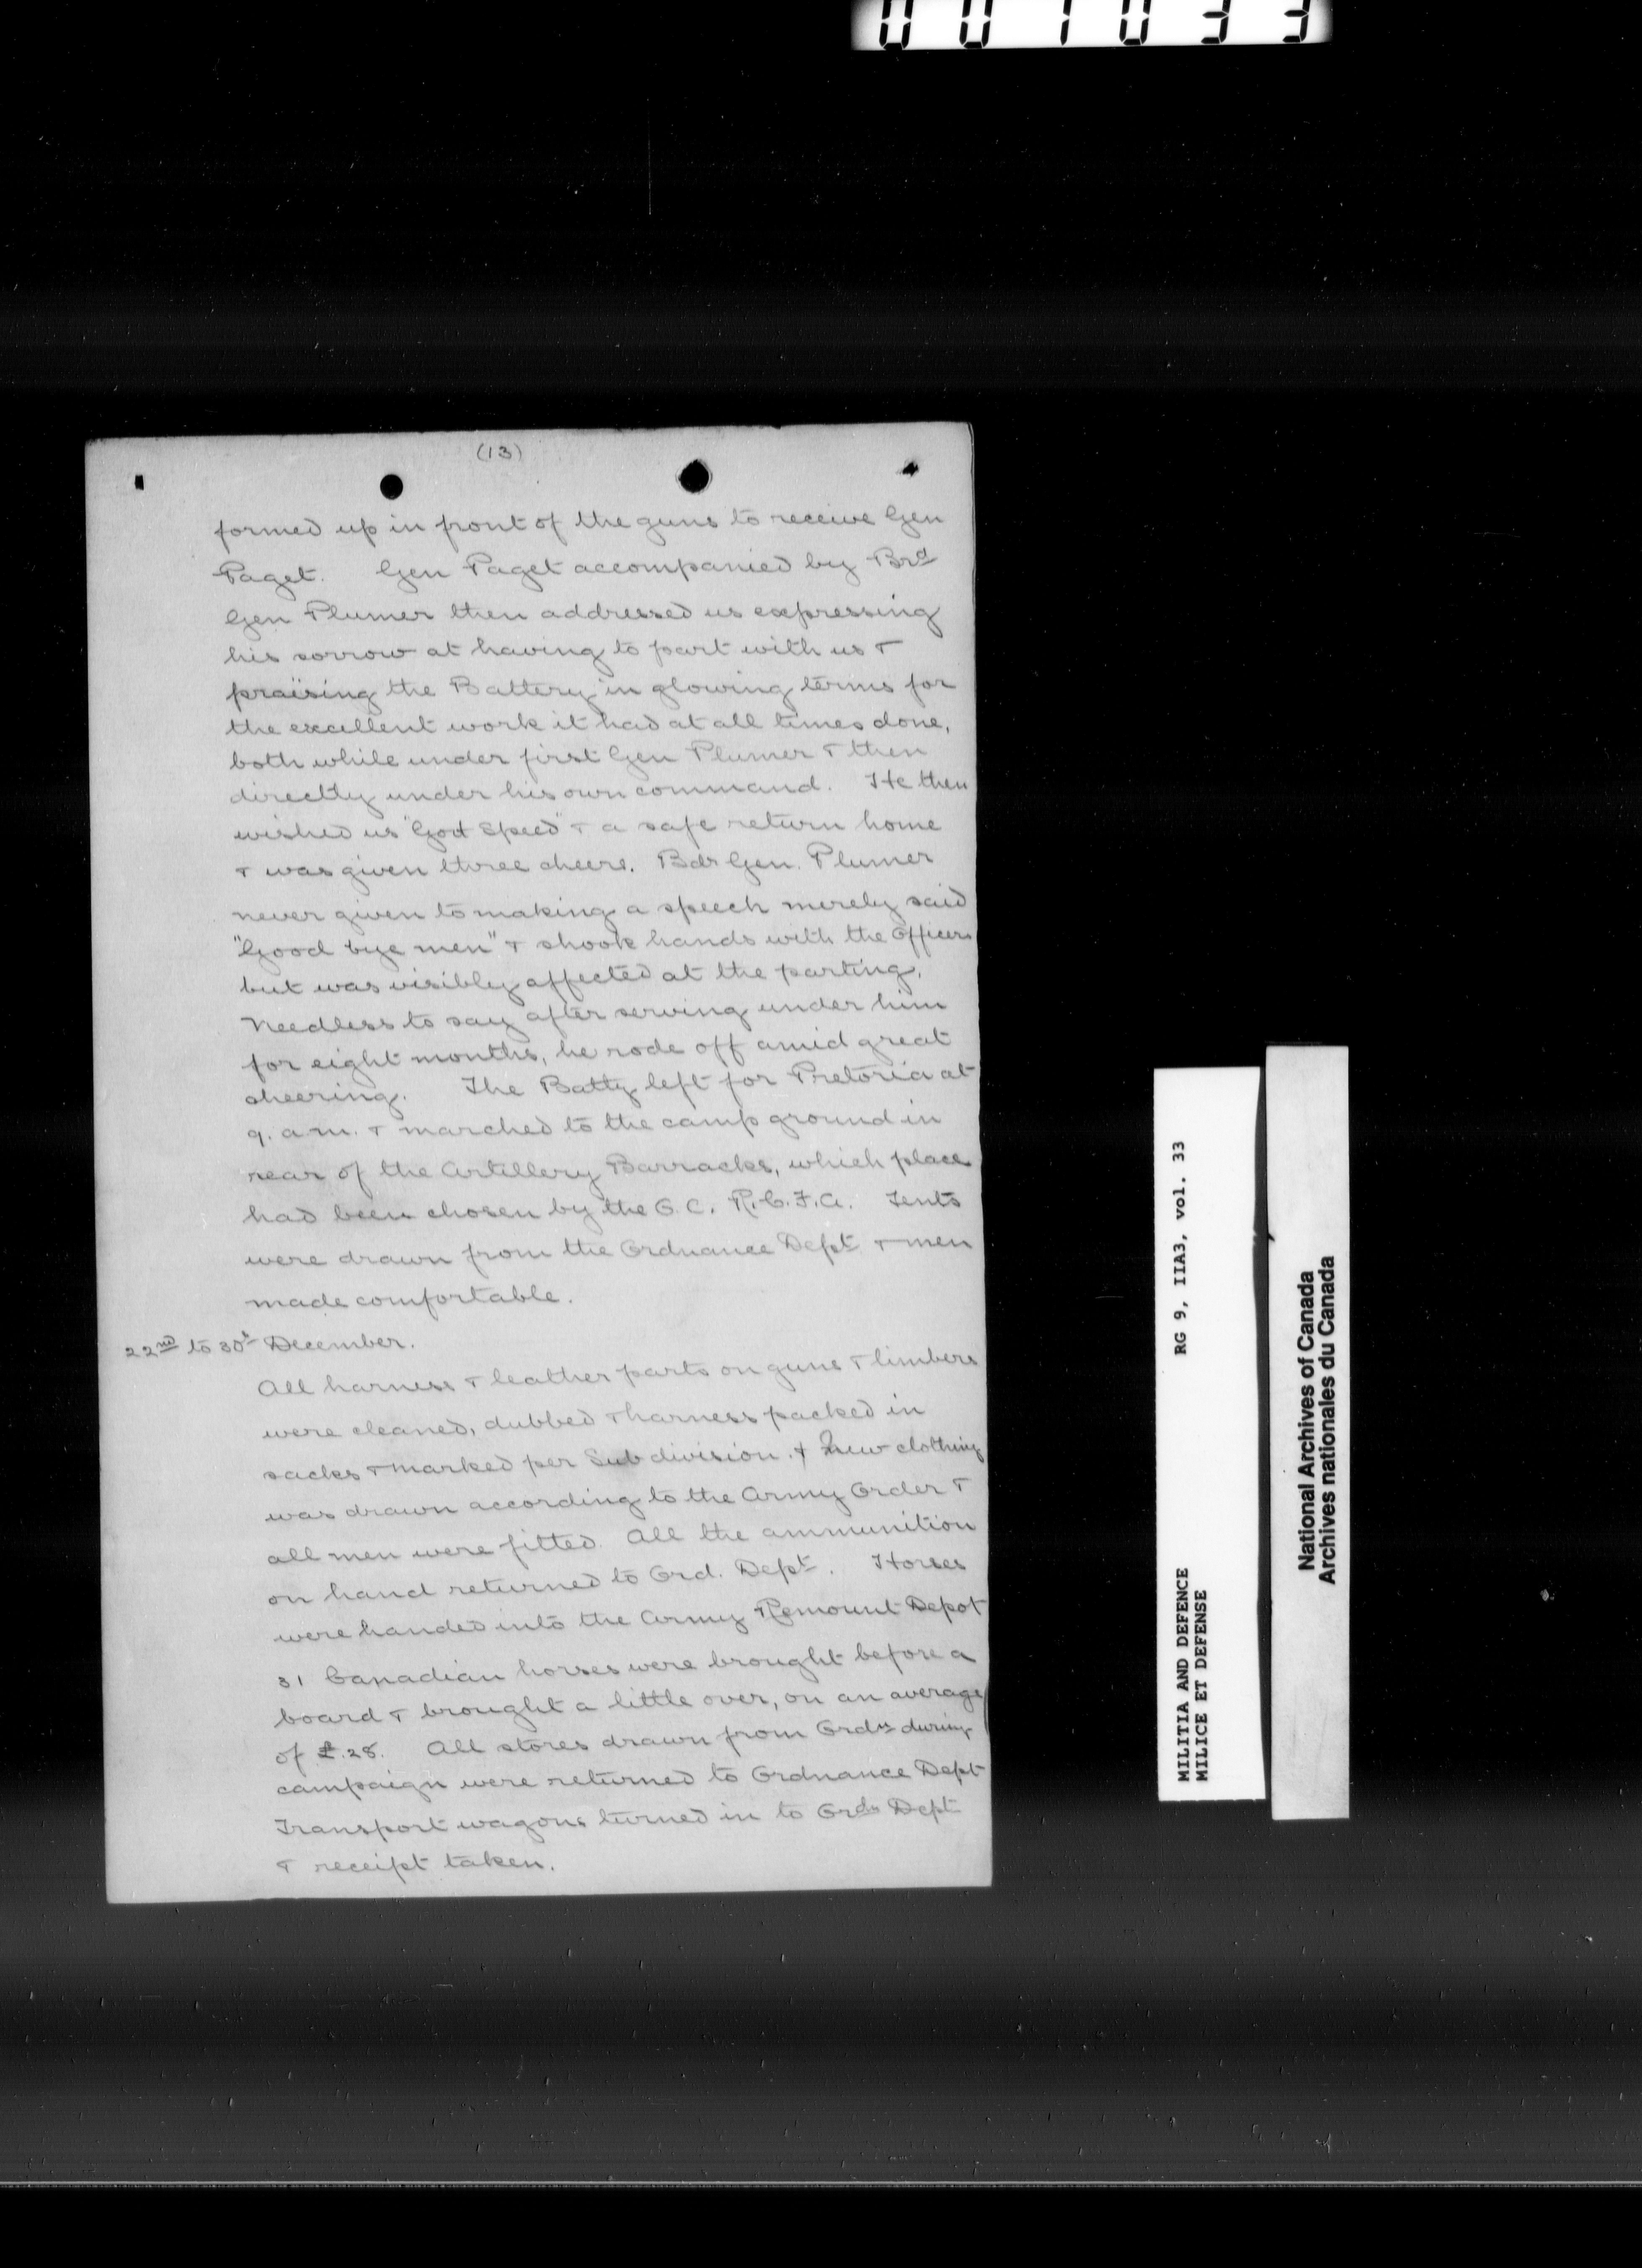 001033
(13)
formed up in front of the guns to receive Gen
Paget. Gen Paget accompanied by Brd
Gen Plumer then addressed us expressing
his sorrow at having to part with us &
praising the Battery in glowing terms for
the excellent work it had at all times done,
both while under first Gen Plumer & then
directly under his own command. He then
wished us "God Speed" & a safe return home
& was given three cheers. Bdr Gen. Plumer
never given to making a speech merely said
"Good bye men" & shook hands with the Officers
but was visibly affected at the parting.
Needless to say after serving under him
for eight months, he rode off amid great
cheering. The Batty left for Pretoria at
9. a.m. & marched to the camp ground in
rear of the Artillery Barracks, which place
had been chosen by the O.C. R.C.F.A. Tents
were drawn from the Ordnance Dept & men
made comfortable.
22nd to 30t December.
All harness & leather parts on guns & limbers
were cleaned, dubbed & harness packed in
sacks & marked per Subdivision. & New clothing
was drawn according to the Army Order &
all men were fitted. All the ammunition
on hand returned to Ord. Dept. Horses
were handed into the Army Remount Depot
31 Canadian horses were brought before a
board & brought a little over, on an average
of £.28. All stores drawn from Ordn during
campaign were returned to Ordnance Dept
Transport wagons turned in to Ordn Dept
& receipt taken.
MILITIA AND DEFENCE RG 9, IIA3, vol. 33
MILICE ET DEFENSE
National Archives of Canada
Archives nationales du Canada